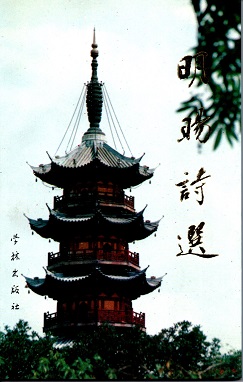 明暘詩選
学林出版社